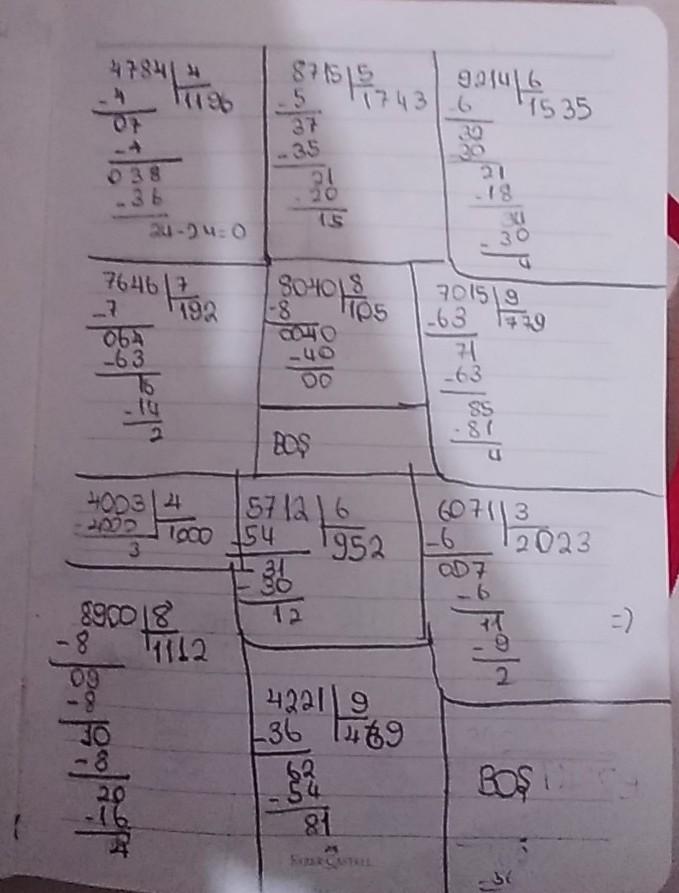 4784 4
-4 1196
07
-4
038
-36
24-24=0
8715 5
-5 1743
37
-35
21
-20
15
9214 6
-6 1535
32
30
21
-18
34
-30
4
7646 7
-7 192
064
-63
16
-14
2
8040 8
-8 105
0040
-40
00
BOŞ
7015 9
-63 779
71
-63
85
-81
4
4003 4
-4000 1000
3
5712 6
-54 952
31
-30
12
6071 3
-6 2023
007
-6
11
-9
2
=)
8900 8
-8 1112
09
-8
10
-8
20
-16
4
4221 9
-36 469
62
-54
81
BOŞ
FABER-CASTELL